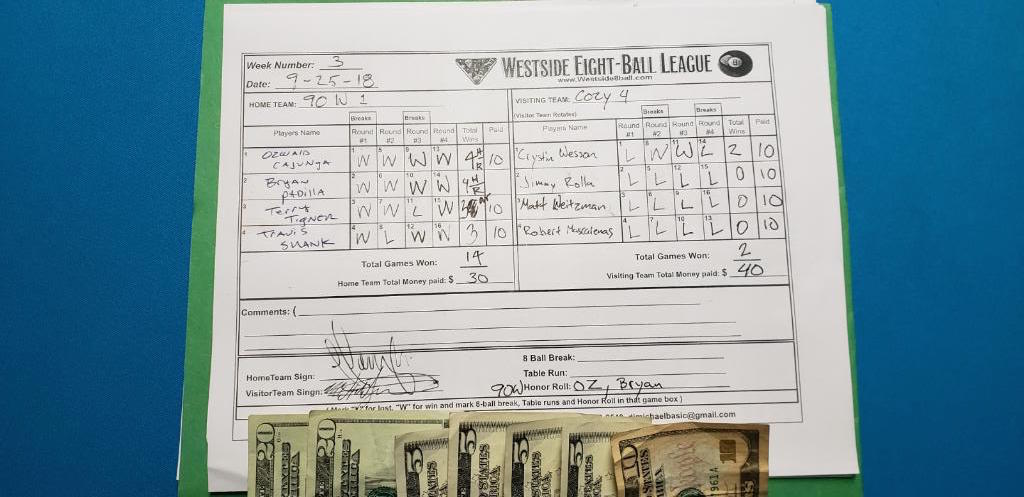 Week Number: 3
WESTSIDE EIGHT-BALL LEAGUE 8
Date: 9-25-18
www.Westside8ball.com
HOME TEAM: 90 W 1
VISITING TEAM: Cozy 4
(Visitor Team Rotates)
Breaks Breaks Breaks Breaks
Players Name Round #1 Round #2 Round #3 Round #4 Total Wins Paid
Players Name Round #1 Round #2 Round #3 Round #4 Total Wins Paid
1 OZWALD CAJUNYA W W W W 4 HR 10
1 Crystin Wesson L W W L 2 10
2 Bryan PADILLA W W W W 4 HR
2 Jimmy Rolla L L L L 0 10
3 Terry TIGNER W W L W 10
3 Matt Weitzman L L L L 0 10
4 TRAVIS SHANK W L W W 3 10
4 Robert L L L L 0 10
Total Games Won: 14
Total Games Won: 2
Home Team Total Money paid: $ 30
Visiting Team Total Money paid: $ 40
Comments: (
8 Ball Break:
HomeTeam Sign:
Table Run:
VisitorTeam Singn:
90W Honor Roll: OZ, Bryan
for lost, "W" for win and mark 8-ball break, Table runs and Honor Roll in that game box )
michaelbasic@gmail.com
20 20 5 5 5 10